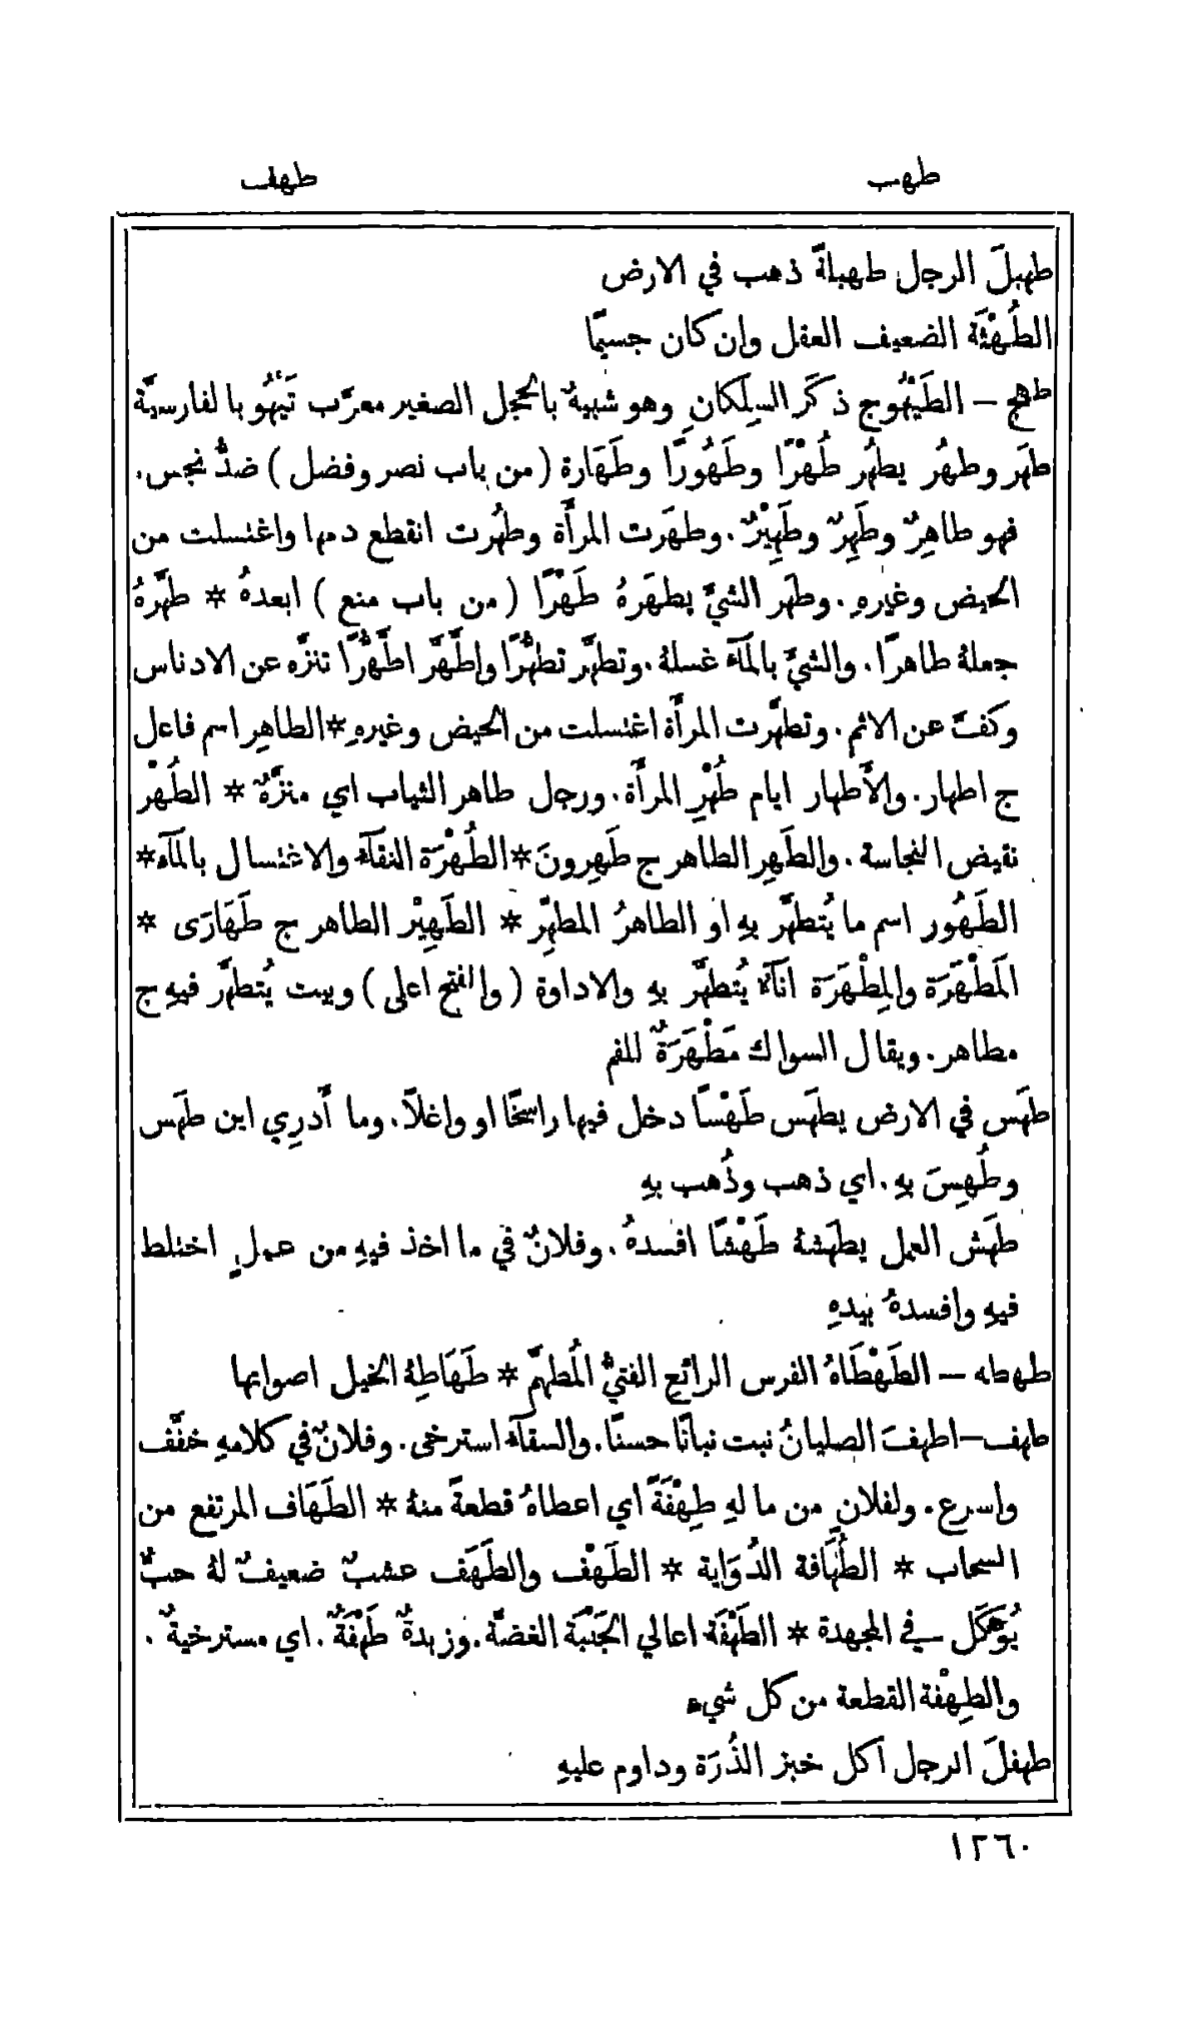 طهب
طهف
طهبلَ الرجل طهبلةً ذهب في الارض
الطُهْثَة الضعيف العقل وان كان جسيمًا
طهج – الطَيْهُوج ذكَر السِلِكانِ وهو شبيهٌ بالحجل الصغير معرَّب تَيْهُو بالفارسيَّة
طهَر وطهُر يطهُر طُهْرًا وطَهُورًا وطَهَارة (من باب نصر وفضل) ضدُّ نجس.
فهو طاهِرٌ وطَهِرٌ وطَهِيْرٌ. وطهَرت المرأَة وطهُرت انقطع دمها واغتسلت من
الحيض وغيرهِ. وطهَر الشيَّ يطهَرهُ طَهْرًا (من باب منع) ابعدهُ * طهَّرهُ
جعلهُ طاهرًا. والشيَّ بالمآء غسلهُ. وتطهَّر تطهُّرًا واطَّهَّر اطَّهُّرًا تنزَّه عن الادناس
وكفَّ عن الاثم. وتطهَّرت المرأَة اغتسلت من الحيض وغيرهِ * الطاهِر اسم فاعل
ج اطهار. والأَطهار ايام طُهْرِ المرأَة. ورجل طاهر الثياب اي منزَّهٌ * الطُهْر
نقيض النجاسة. والطَهِر الطاهر ج طَهِرونَ * الطُهْرَة النقآء والاغتسال بالمآء *
الطَهُور اسم ما يُتطهَّر بهِ او الطاهرُ المطهِّر * الطَهِيْر الطاهر ج طَهَارَى *
المَطْهَرَة والمِطْهَرَة انآء يُتطهَّر بهِ والاداوة (والفتح اعلى) وبيت يُتطهَّر فيهِ ج
مطاهر. ويقال السواك مَطْهَرَةٌ للفم
طهَس في الارض يطهَس طَهْسًا دخل فيها راسخًا او واغلاً. وما أَدرِي اين طهَس
وطُهِسَ بهِ. اي ذهب وذُهب بهِ
طهَش العمل يطهَشهُ طَهْشًا افسدهُ. وفلانٌ في ما اخذ فيهِ من عملٍ اختلط
فيهِ وافسدهُ بيدهِ
طهطه – الطَهْطَاهُ الفرس الرائع الفتيُّ المُطهَّم * طَهَاطِهُ الخيل اصواتها
طهف – اطهفَ الصليانُ نبت نباتًا حسنًا. والسقآء استرخى. وفلانٌ في كلامهِ خفَّف
واسرع. ولفلانٍ من ما لهِ طِهْفَةً اي اعطاهُ قطعةً منهُ * الطَهَاف المرتفع من
السحاب * الطُهَافة الذُوَاية * الطَهْف والطَهَف عشبٌ ضعيفٌ لهُ حبٌّ
يُؤكَل في المجهدة * الطَهْفَة اعالي الجَنْبَة الغضَّة. وزبدةٌ طَهْفَةٌ. اي مسترخيةٌ.
والطِهْفة القطعة من كل شيء
طهفلَ الرجل اكل خبز الذُرَة وداوم عليهِ
١٢٦٠